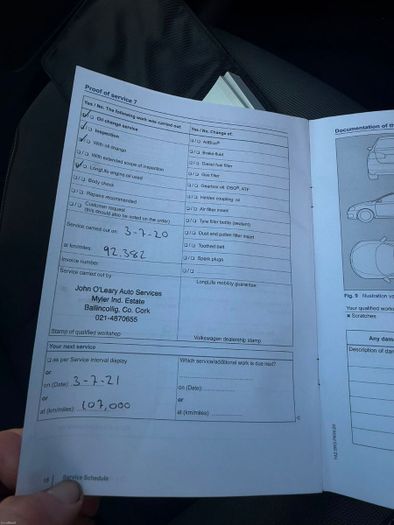 Proof of service 7
Yes / No. The following work was carried out
Oil change service
Inspection
With oil change
With extended scope of inspection
LongLife engine oil used
Body check
Repairs recommended
Customer request
(this should also be noted on the order)
Service carried out on: 3-7-20
at km/miles: 92,382
Invoice number:
Service carried out by
John O'Leary Auto Services
Myler Ind. Estate
Ballincollig, Co. Cork
021-4870655
Stamp of qualified workshop
Yes / No. Change of:
AdBlue®
Brake fluid
Diesel fuel filter
Gas filter
Gearbox oil, DSG®, ATF
Haldex coupling oil
Air filter insert
Tyre filler bottle (sealant)
Dust and pollen filter insert
Toothed belt
Spark plugs
LongLife mobility guarantee
Volkswagen dealership stamp
Your next service
as per Service interval display
or
on (Date): 3-7-21
or
at (km/miles): 107,000
Which service/additional work is due next?
on (Date):
or
at (km/miles):
Service Schedule
Documentation of
Fig. 9
Your qualified
Scratches
Any dam
Description of da